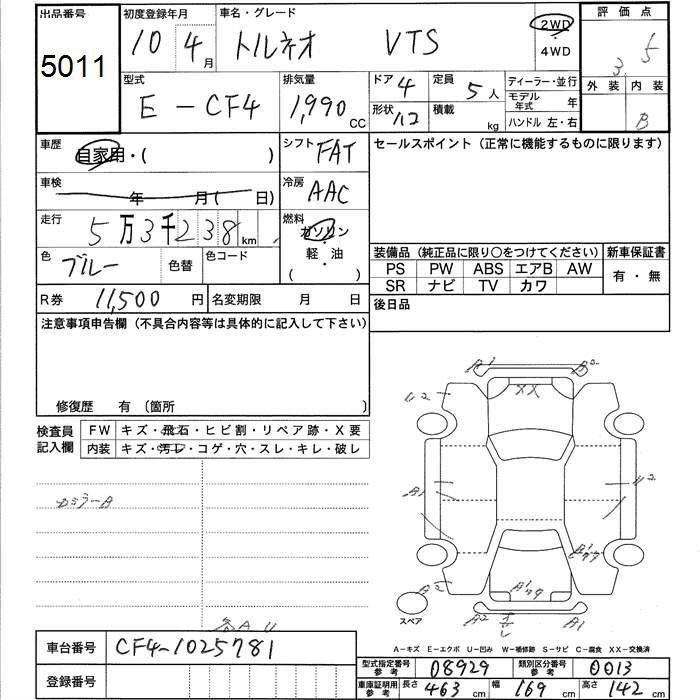 出品番号 初度登録年月 車名・グレード 2WD 評価点
5011 10 4月 トルネオ VTS 4WD 3 5
型式 排気量 ドア 4 定員 5人 ディーラー・並行 外装 内装
E-CF4 1,990 CC 形状 ハコ 積載 kg モデル年式 年 B
ハンドル 左・右
車歴 自家用・( ) シフト FAT セールスポイント（正常に機能するものに限ります）
車検 年 月( 日) 冷房 AAC
走行 5万3千238km 燃料 ガソリン
軽・油
( )
色 ブルー 色替 色コード
装備品（純正品に限り○をつけてください） 新車保証書
PS PW ABS エアB AW 有・無
SR ナビ TV カワ
R券 11,500円 名変期限 月 日 後日品
注意事項申告欄（不具合内容等は具体的に記入して下さい）
修復歴 有〔箇所 〕
検査員記入欄 FW キズ・飛石・ヒビ割・リペア跡・X要
内装 キズ・汚レ・コゲ・穴・スレ・キレ・破レ
A1 A2
XX
A1
A2 A1
スペア
A－キズ E－エクボ U－凹み W－補修跡 S－サビ C－腐食 XX－交換済
車台番号 CF4-1025781
登録番号
型式指定番号 参考 08929 類別区分番号 参考 0013
車庫証明用 参考 長さ 463cm 幅 169cm 高さ 142cm